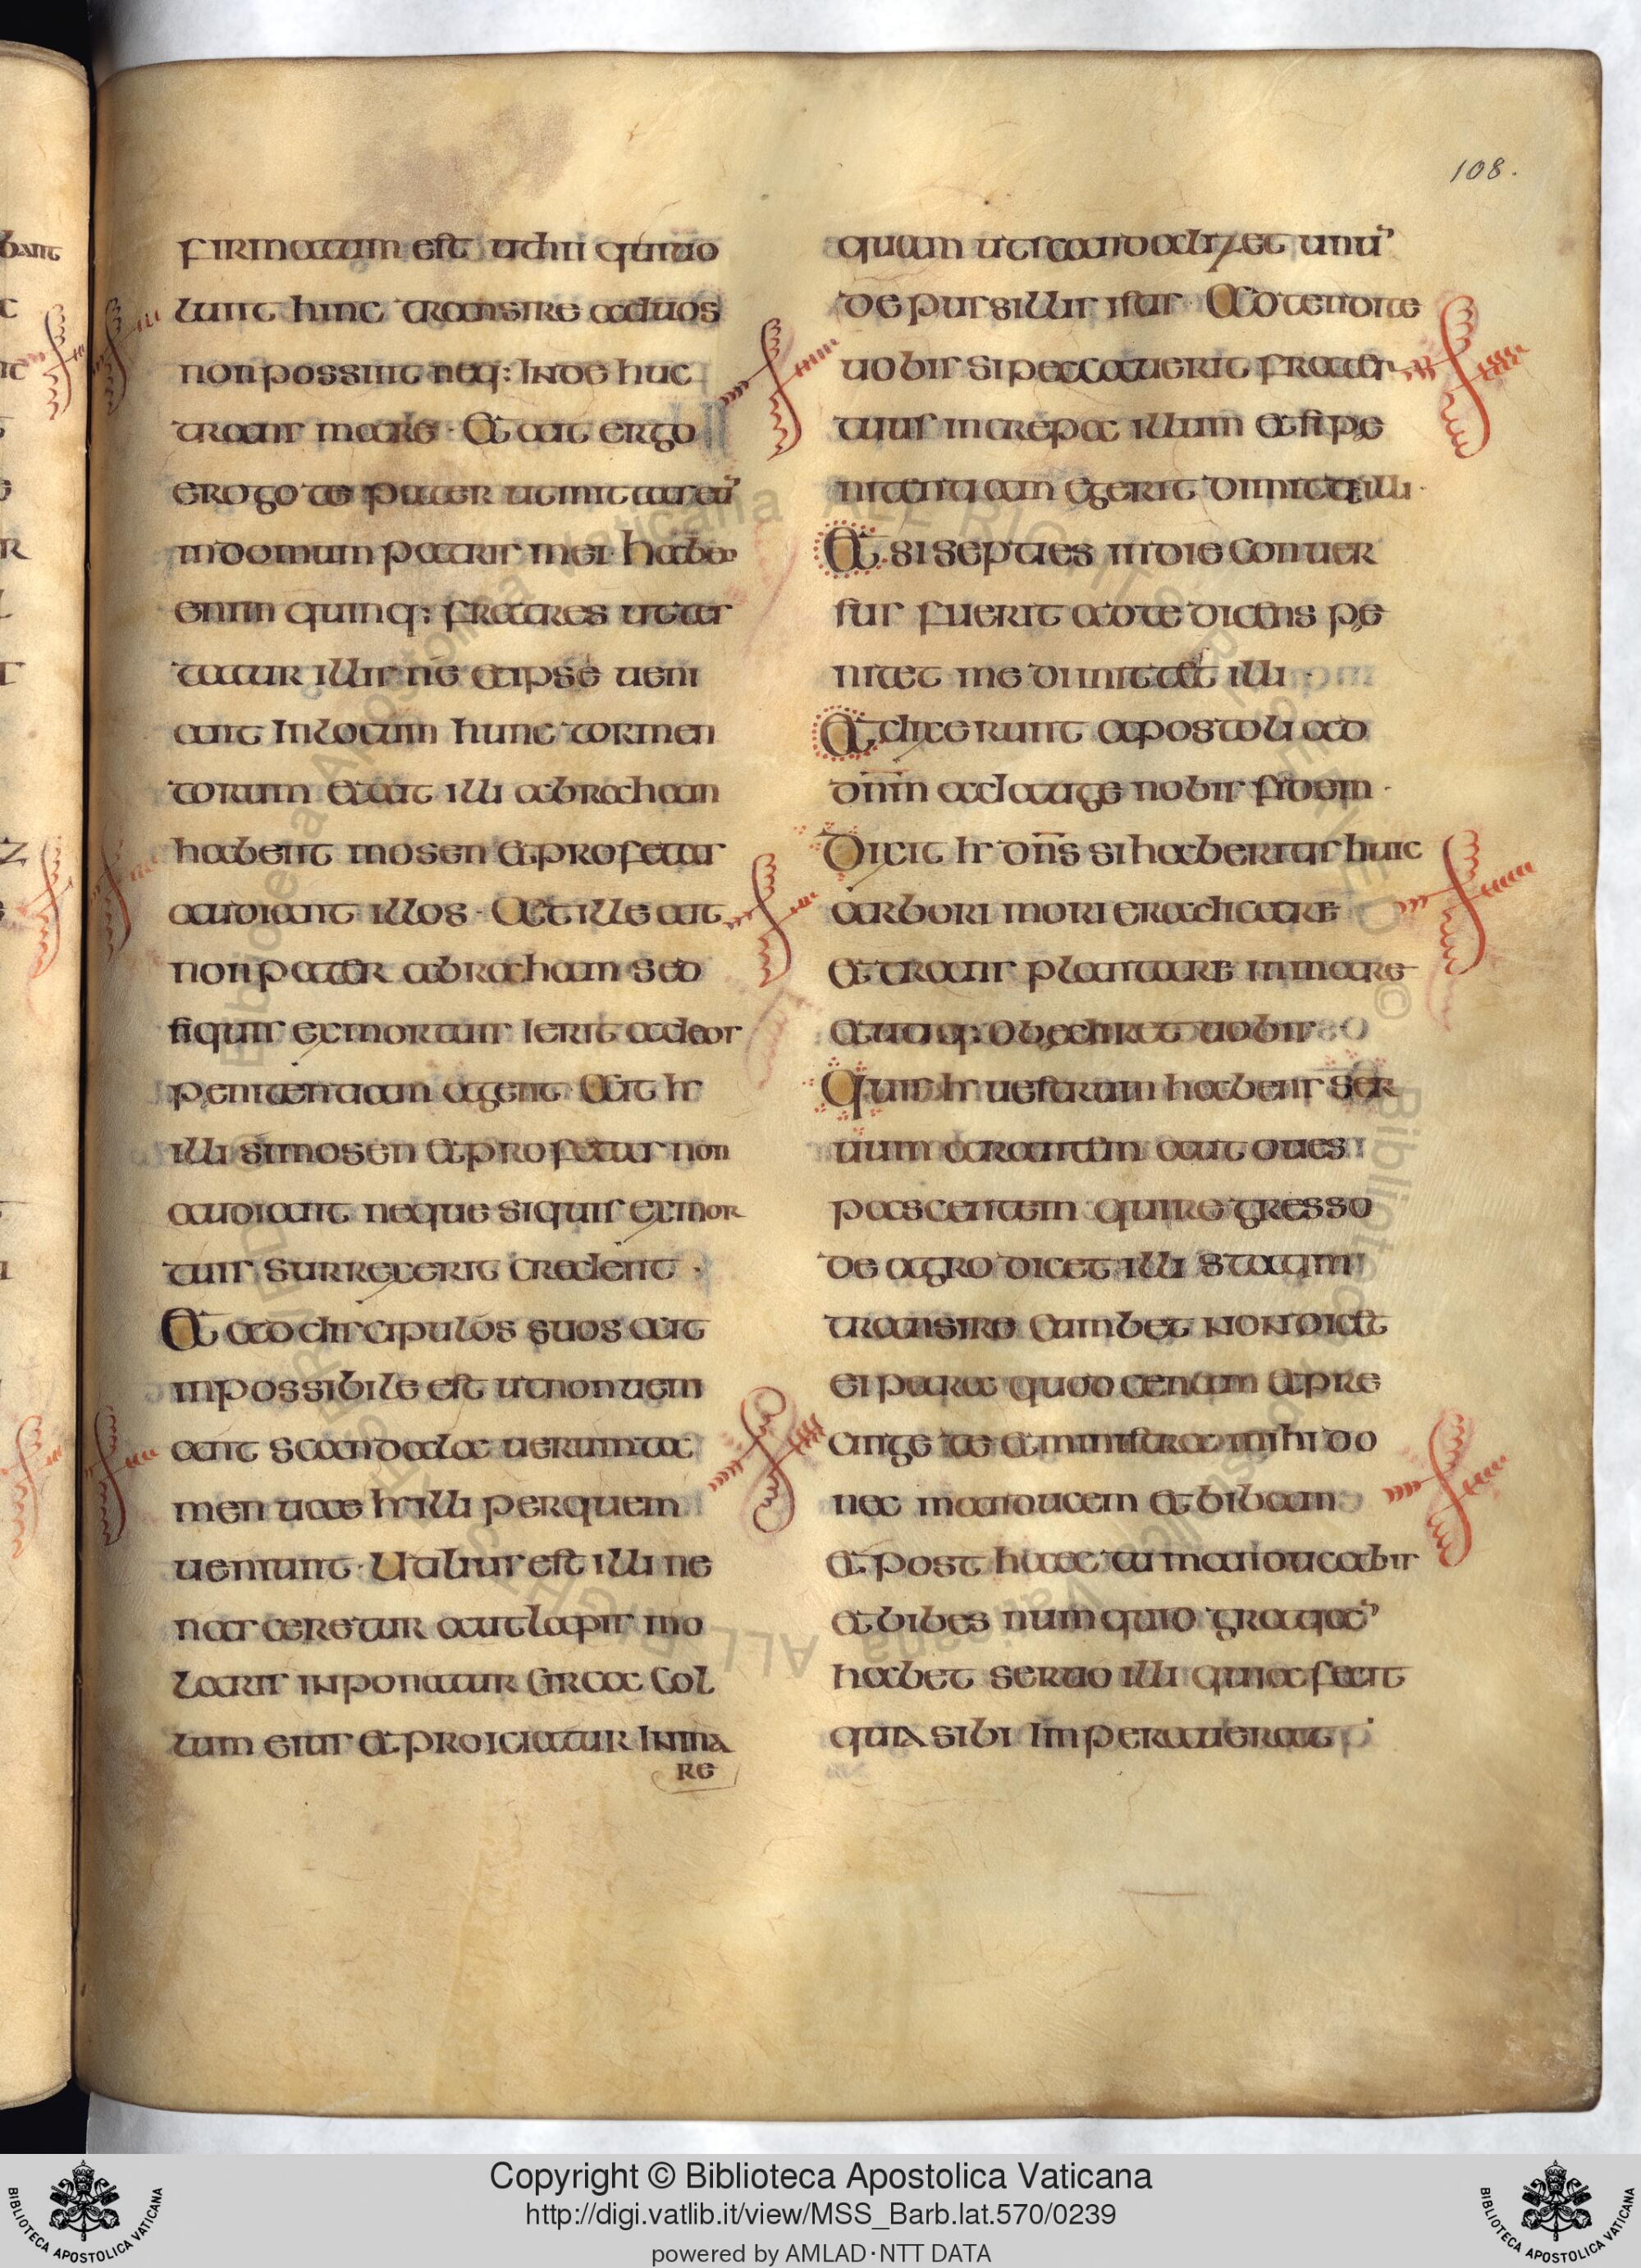 108.
firmatum est ut hii qui uo
lunt hinc transire ad uos
non possint neq: inde huc
transmeare · Et ait ergo
erogo te pater ut mittas eū
in domum patris mei habeo
enim quinq: fratres ut tes
tatur illis ne et ipse ueni
ant in locum hunc tormen
torum et ait illi abracham
habent mosen et profetas
audiant illos · At ille ait
non pater abracham sed
si quis ex mortuis ierit ad eos
penitentiam agent · Ait hr
illi si mosen et profetas non
audiant neque si quis ex mor
tuis surrexerit credent ·
Et ad discipulos suos ait
inpossibile est ut non ueni
ant scandala uerumta
men uae hr illi per quem
ueniunt · Utilius est illi ne
nasceretur aut lapis mo
laris inponatur circa col
lum eius et proiciatur in ma
re
quam ut scandalizet unū
de pussillis istis · Adtendite
uobis si peccauerit frater
tuus increpa illum et si pe
nitentiam egerit dimitte illi ·
Et si septies in die conuer
sus fuerit ad te dicens pe
nitet me dimittet illi ·
Et dixerunt apostoli ad
dnm adauge nobis fidem ·
Dicit hr dns si haberitis huic
arbori mori eradicare
et transplantare in mare
et utiq: obediret uobis
Quis hr uestrum habens ser
uum arantem aut oues
pascentem qui regresso
de agro dicet illi statim
transire cumbet non dicet
ei para quod cenem et pre
cinge te et ministra mihi do
nec manducem et bibam
et post haec tu manducabis
et bibes numquid gratiā
habet seruo illi quia fecit
quia sibi imperauerat
Copyright © Biblioteca Apostolica Vaticana
http://digi.vatlib.it/view/MSS_Barb.lat.570/0239
powered by AMLAD·NTT DATA
BIBLIOTECA APOSTOLICA VATICANA
BIBLIOTECA APOSTOLICA VATICANA